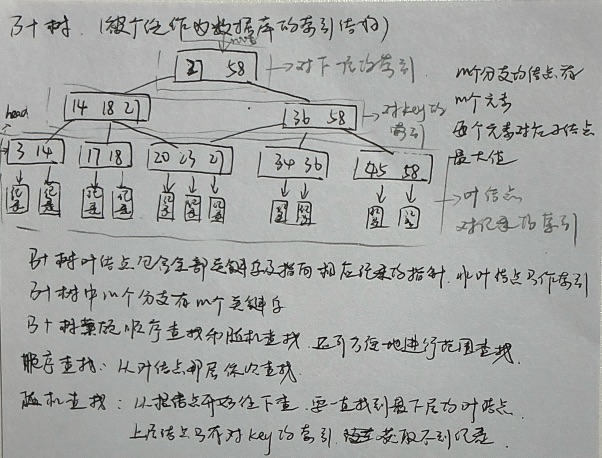 B+树.（被个人作为数据库的索引结构）
root
27 58 → 对下层的索引
m个分支的结点有
m个元素
每个元素对应子结点
最大值
14 18 27
36 58 → 对key的索引
head
3 14
17 18
20 23 27
34 36
45 58
记录 记录 记录 记录 记录 记录 记录 记录 记录 记录 记录
→ 叶结点
对记录的索引
B+树叶结点包含全部关键字及指向相应记录的指针，非叶结点只作索引
B+树中m个分支有m个关键字
B+树兼顾顺序查找和随机查找，还可方便地进行范围查找.
顺序查找：从叶结点那层依次查找.
随机查找：从根结点开始往下查，要一直找到最下层的叶结点.
上层结点只存对key的索引，获取不到记录.